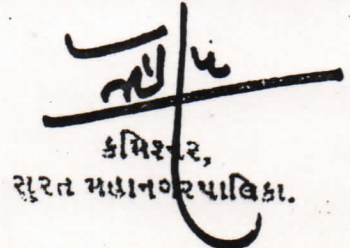 કમિશ્નર,
સુરત મહાનગરપાલિકા.